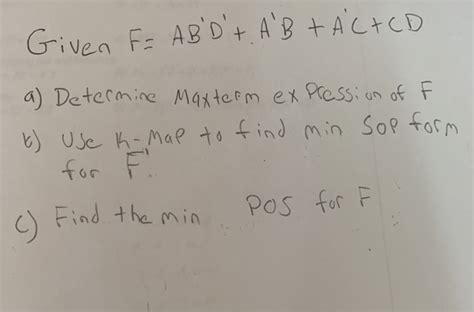 Given F= AB'D' + A'B + A'C + CD
a) Determine Maxterm expression of F
b) Use K-Map to find min SOP form
for F'.
c) Find the min POS for F